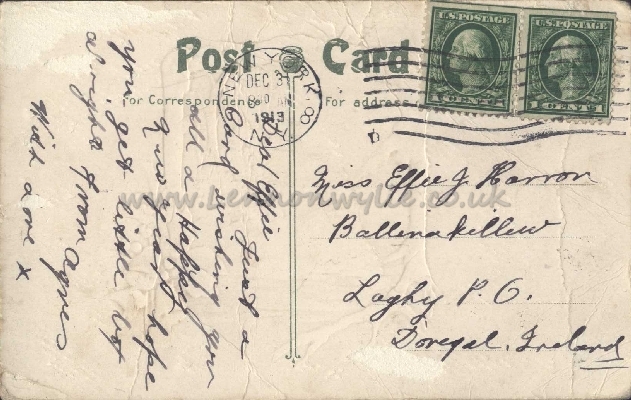 Post Card
For Correspondence
For address
NEW YORK, N.Y.
DEC 3
1913
U.S. POSTAGE
1 CENT 1
U.S. POSTAGE
1 CENT 1
Dear Effie Just a
Card wishing you
all a Happy
New year & hope
you get little box
alright from Agnes
With love x
Miss Effie J Harron
Ballinakillew
Laghy P.O.
Donegal, Ireland
www.lennonwylie.co.uk